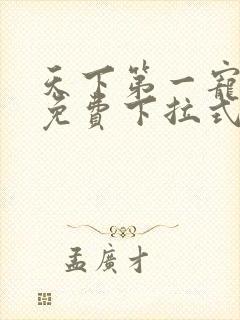 天下第一寵
免費下拉式
孟廣才